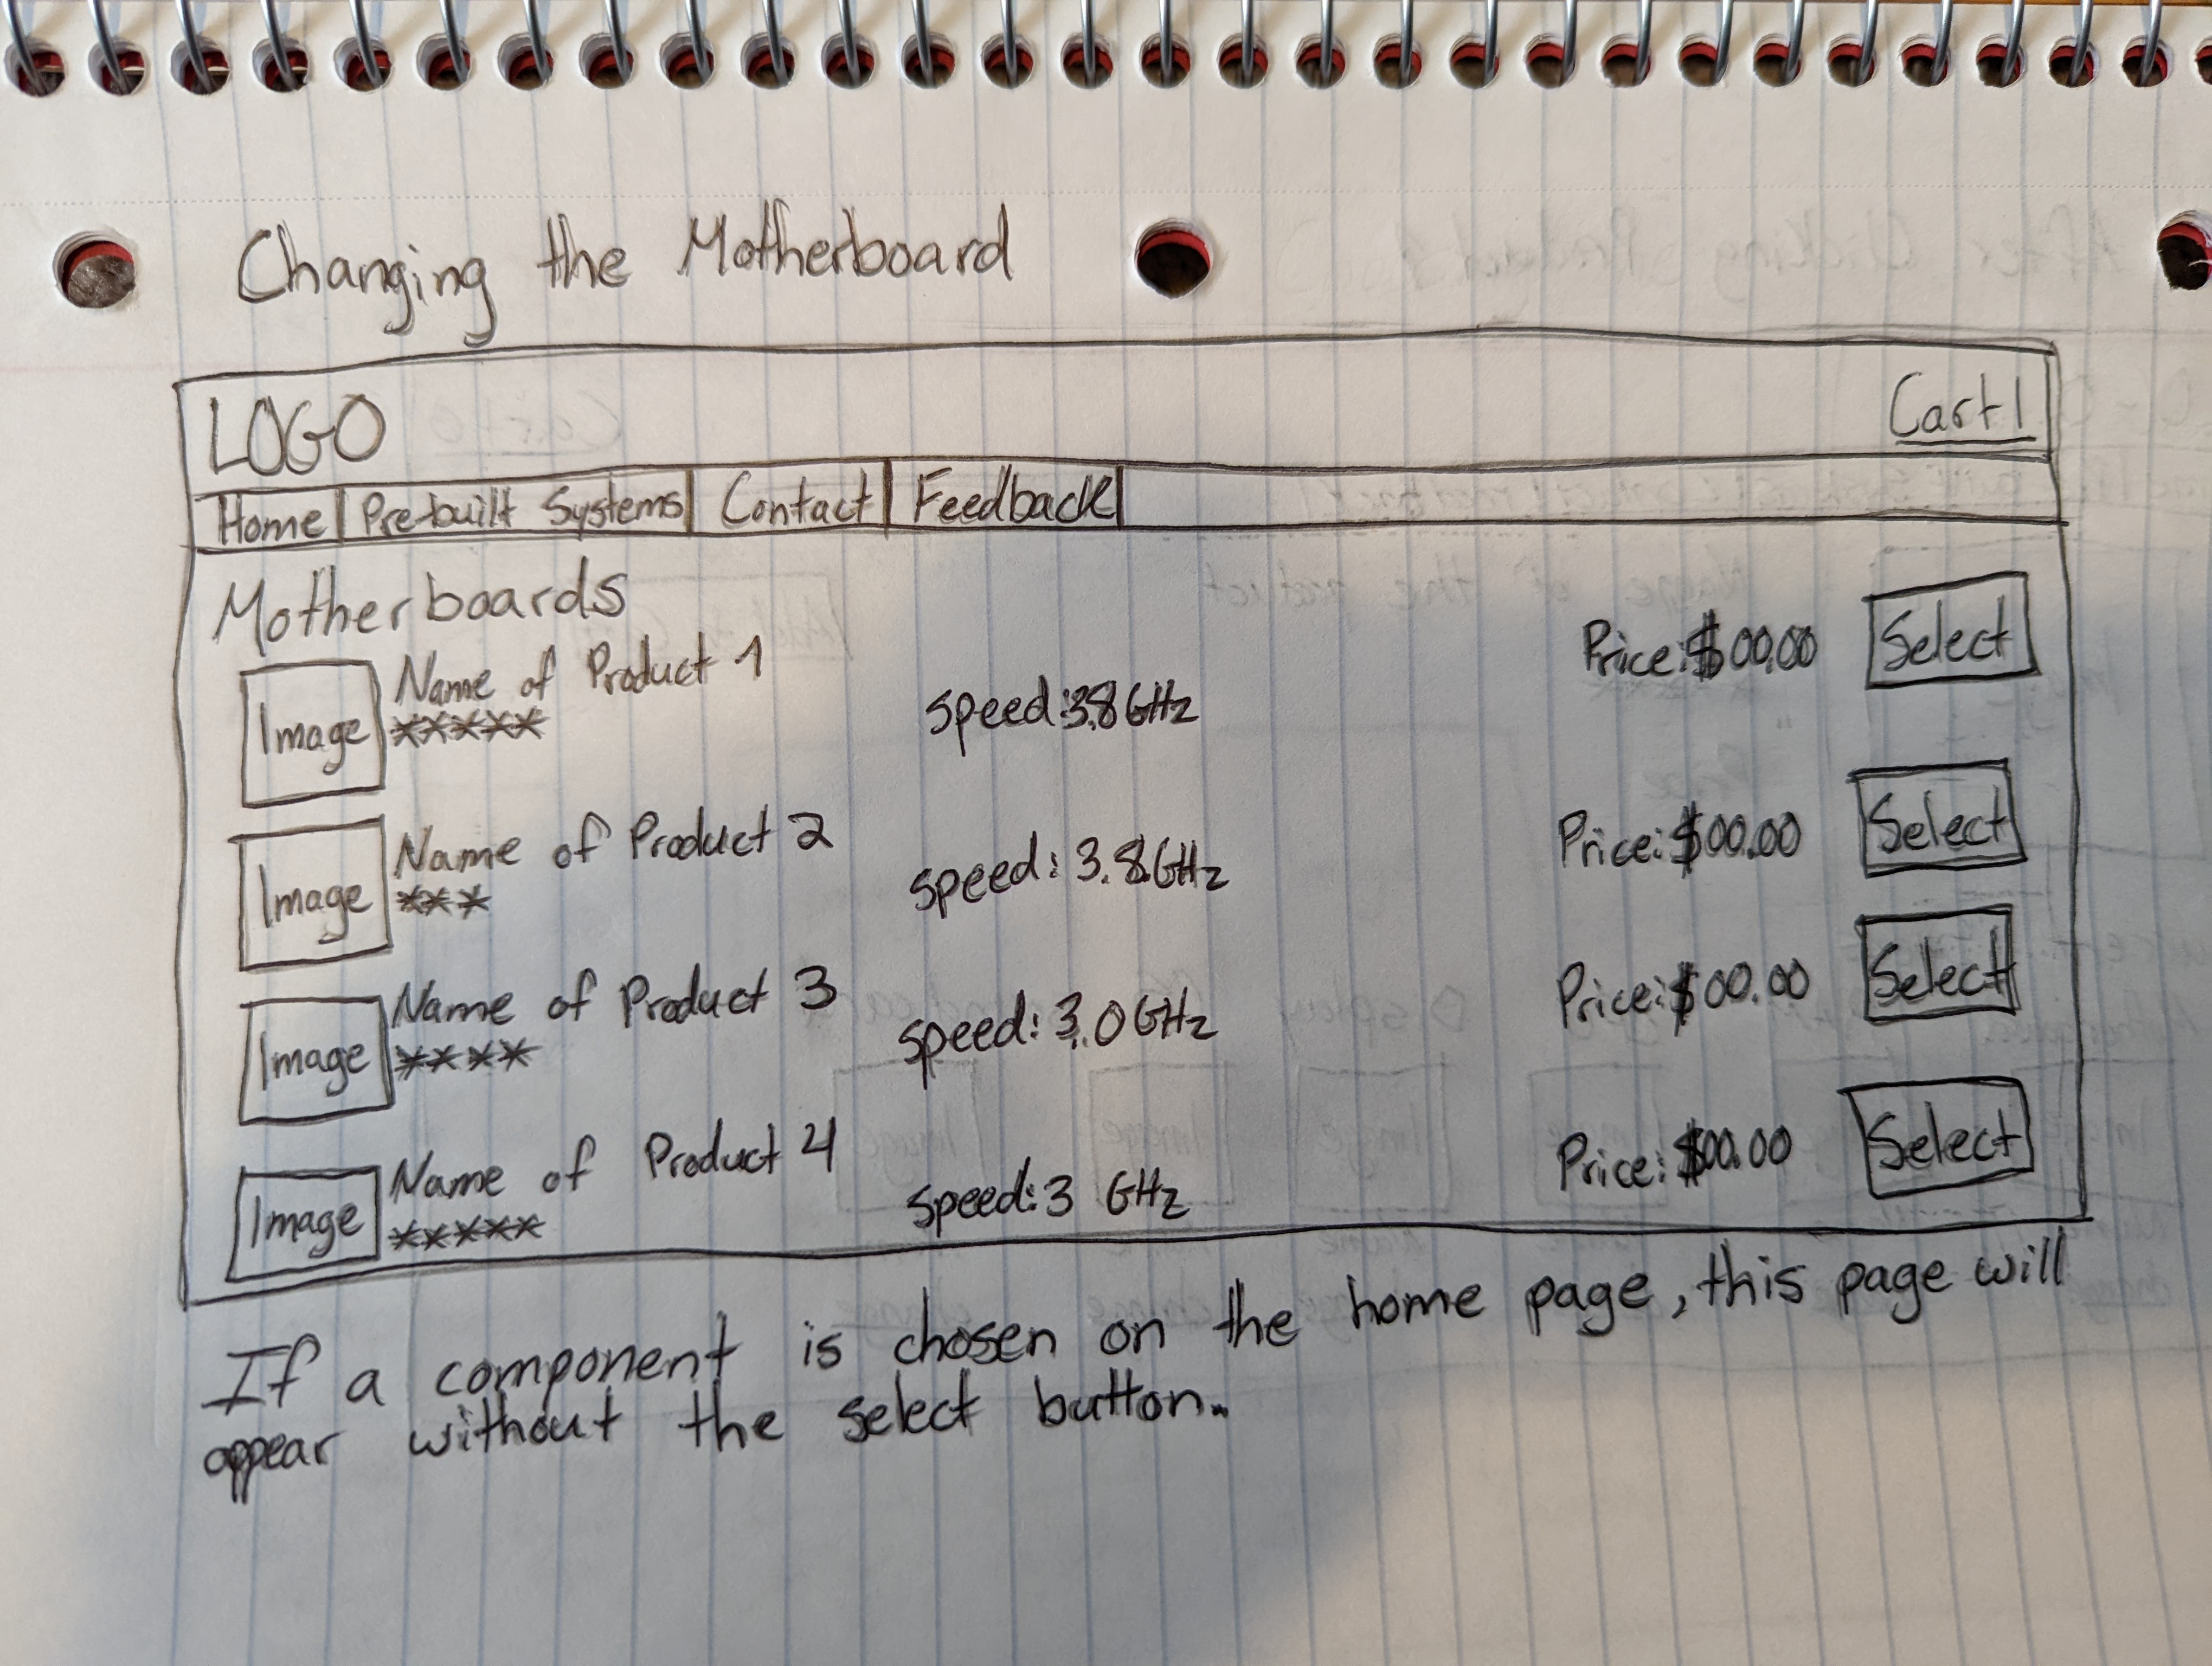 Changing the Motherboard
LOGO Cart 1
Home Pre-built Systems Contact Feedback
Motherboards
Image Name of Product 1 speed:3.8GHz Price:$00.00 Select
*****
Image Name of Product 2 speed: 3.8GHz Price:$00.00 Select
***
Image Name of Product 3 speed: 3.0GHz Price:$00.00 Select
****
Image Name of Product 4 speed:3 GHz Price:$00.00 Select
*****
If a component is chosen on the home page, this page will
appear without the select button.